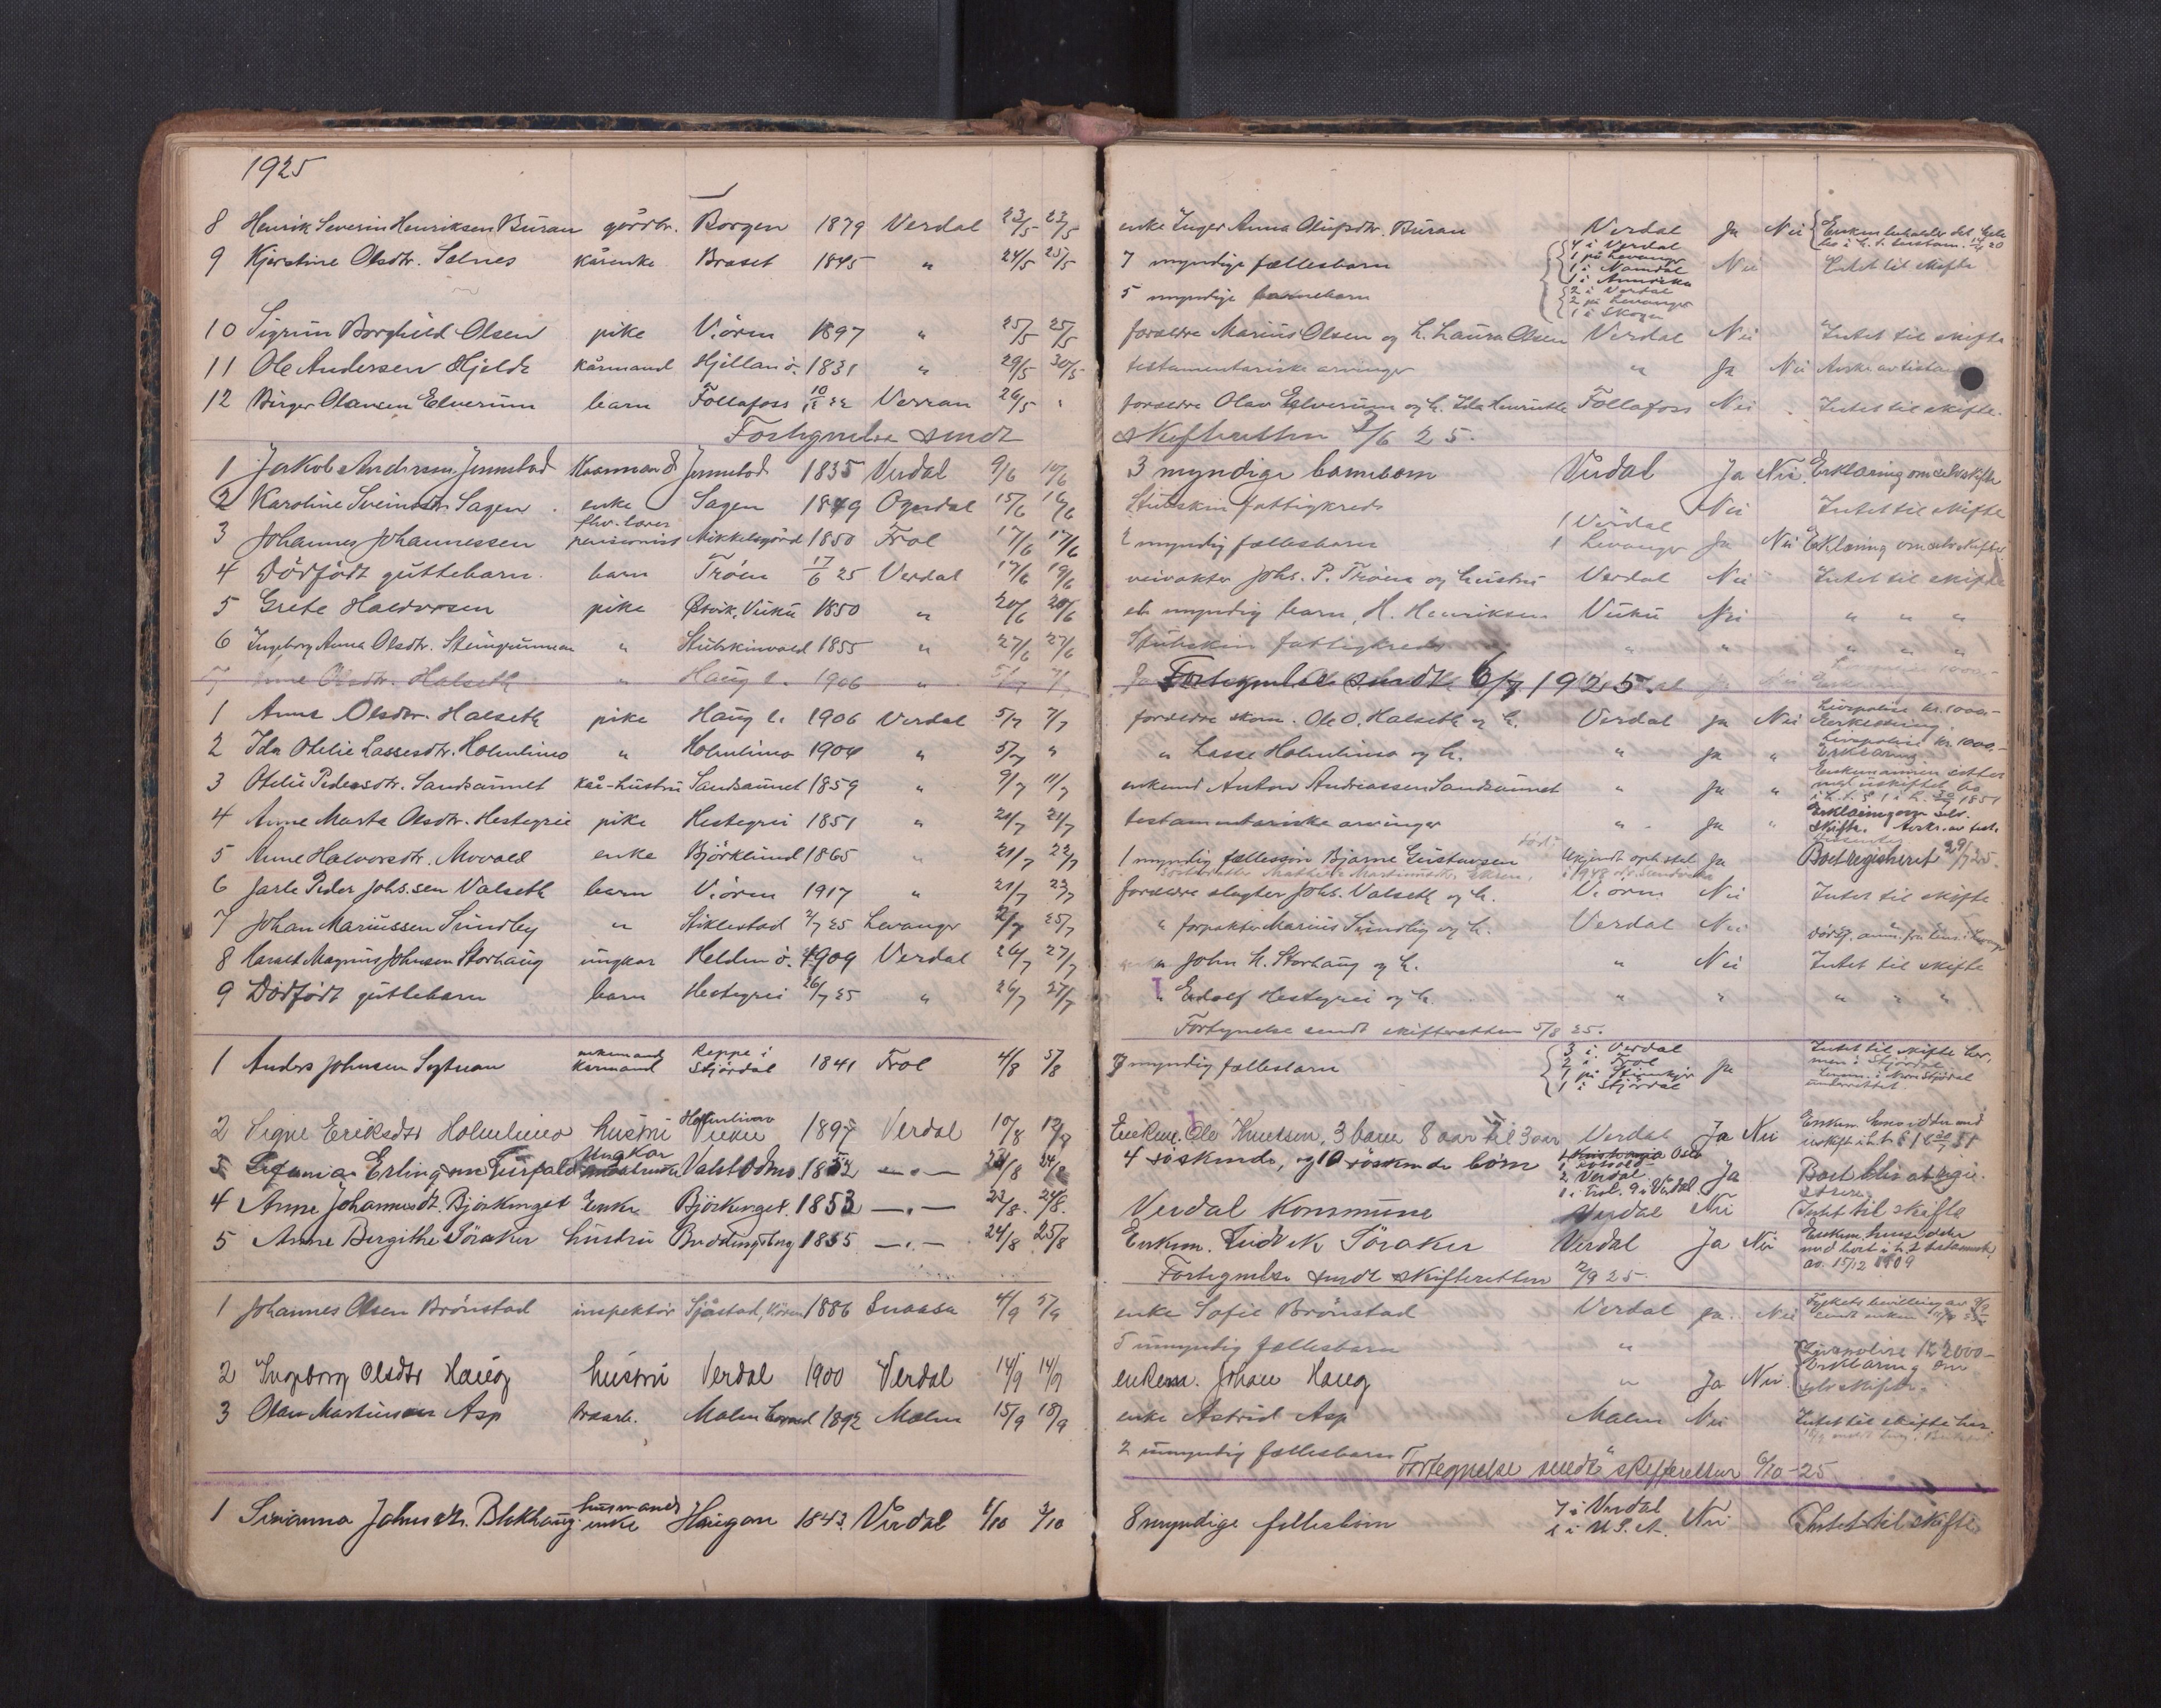 1925
8 Henrik Severin Henriksen Buran gårdbr. Borgen 1879 Verdal 23/5 23/5 enke Inger Anna Olufsdtr. Buran Verdal Ja Nei
9 Kjerstine Olsdtr. Salnes kårenke Braset 1845 " 24/5 25/5 7 myndige fællesbarn 4 i Verdal 1 på Levanger 1 i Namdal 1 i Amerika Nei Intet til skifte
5 myndige barnebarn 2 i Verdal 2 på Levanger 1 i Skogn
10 Sigrun Borghild Olsen pike V.øren 1897 " 25/5 25/5 forældre Marius Olsen og h. Laura Olsen Verdal Nei Intet til skifte
11 Ole Andersen Hjelde kårmand Hjellan ö. 1831 " 29/5 30/5 testamentariske arvinger " Ja Nei
12 Birger Olausen Elverum barn Follafoss Verran 26/5 " forældre Olav Elverum og h. Ida Henriette Follafoss Nei Intet til skifte.
Fortegnelse sendt skifteretten 3/6 25.
1 Jakob Andersen Jermstad Kaarmand Jermstad 1835 Verdal 9/6 10/6 3 myndige barnebarn Verdal Ja Nei Erklæring om selvskifte
2 Karoline Sveinsdtr. Sagen enke Sagen 1849 Ogndal 15/6 16/6 Stubskin fattigkreds Nei Intet til skifte
3 Johannes Johannessen pensionist Mikkelsgård 1850 Frol 17/6 17/6 2 myndig fællesbarn 1 Verdal 1 Levanger Ja Nei Erklæring om selvskifte
4 Dödfödt guttebarn. barn Tröen 17/6 25 Verdal 17/6 19/6 veivokter Johs. P. Tröen og hustru Verdal Nei Intet til skifte
5 Grete Haldorsen pike Østvik, Vuku 1850 " 20/6 20/6 et myndig barn, H. Henriksen Vuku Nei " " "
6 Ingeborg Anna Olsdtr. Steingrunnen " Stubskinvald 1855 " 27/6 27/6 Stubskin fattigkreds " " " " "
7 Anne Olsdtr. Halseth " Haug l. 1906 " 5/7 7/7 Fortegnelse sendt 6/7 1925.
1 Anna Olsdtr. Halseth pike Haug l. 1906 Verdal 5/7 7/7 forældre skom. Ole O. Halseth og h. Verdal Ja Nei Livspolise kr. 1000,- Erklæring
2 Ida Otelie Lassesdtr. Holmlimo " Holmlimo 1904 " 5/7 " " Lasse Holmlimo og h. " Ja " Livspolise kr. 1000,- Erklæring
3 Otelie Pedersdtr. Sandsaunet kår-hustru Sandsaunet 1859 " 9/7 11/7 enkemd Anton Andreassen Sandsaunet " Ja " Enkemannen sitter med uskiftet bo
4 Anne Marta Olsdtr. Hestegrei pike Hestegrei 1851 " 21/7 21/7 testamentariske arvinger " Ja " Erklæring selv. skifte. Avskr. av test.
5 Anne Halvorsdtr. Movald enke Björklund 1865 " 21/7 22/7 1 myndig fællessön Bjarne Gustavsen Ukjendt opholdst. Ja Boet registreret 29/7 25.
6 Jarle Peder Johs.sen Valseth barn V.øren 1917 " 21/7 23/7 forældre slagter Johs. Valseth og h. V.øren Nei Intet til skifte
7 Johan Mariussen Sundby " Stiklestad 2/7 25 Levanger 25/7 " forpakter Marius Sundby og h. Verdal Nei
8 Harald Magnus Johnsen Storhaug ungkar Helden ö. 1909 Verdal 26/7 27/7 " John H. Storhaug og h. " Nei Intet til skifte
9 Dödfödt guttebarn barn Hestegrei 26/7 25 " 26/7 27/7 " Edolf Hestegrei og h. " " " " "
Fortegnelse sendt skifteretten 5/8 25.
1 Anders Johnsen enkemand kårmand Reppe i Stjördal 1841 Frol 4/8 5/8 7 myndig fællesbarn 3 i Verdal 2 i Frol 1 på Steinkjer 1 i Stjördal Ja Intet til skifte her, men i Stjördal underrettet
2 Signe Eriksdtr Holmlimo hustru Holmlimo Vuku 1897 Verdal 10/8 12/8 Enkem. Ole Knutsen, 3 barn 8 aar til 3 aar Verdal Ja Nei
3 Erlingsen Ungkar 1852 —"— 24/8 4 söskende, og 10 söskende börn Oslo 2 Verdal Ja Boet
4 Anne Johannesdt. Björkenget Enke Björkenget. 1853 —"— 23/8. 24/8. Verdal Kommune Verdal Nei Intet til skifte
5 Anne Bergithe Söraker hustru 1855 —"— 24/8 25/8 Enkem. Ludvik Söraker Verdal Ja Nei
Fortegnelse sendt skifteretten 2/9 25.
1 Johannes Olsen Brönstad inspektör Sjåstad, Vören 1886 Snaasa 4/9 5/9 enke Sofie Brönstad Verdal ja. Nei
5 umyndig fællesbarn "
2 Ingeborg Olsdtr Haug hustru Verdal 1900 Verdal 14/9 14/9 enkem. Johan Haug " Ja Nei. Livspolise kr 2000- Erklæring om selvskifte.
3 Olav Martinsen Asp Malm 1892 Malm 15/9 18/9 enke Astrid Asp Malm Nei Intet til skifte her
2 umyndig fællesbarn
Fortegnelse sendt skifteretten 6/10-25
1 Sirianna Johnsdtr. Blekhaug. husmands enke Haugan 1843 Verdal 1/10 3/10 8 myndige fellesbörn 7 i Verdal 1 i U.S.A. Nei. Intet til skifte